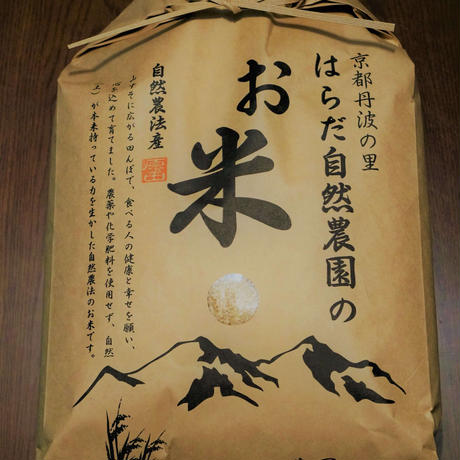 京都丹波の里
はらだ自然農園の
お米
自然農法産
山すそに広がる田んぼで、食べる人の健康と幸せを願い、
心を込めて育てました。農薬や化学肥料を使用せず、自然
(土)が本来持っている力を生かした自然農法のお米です。